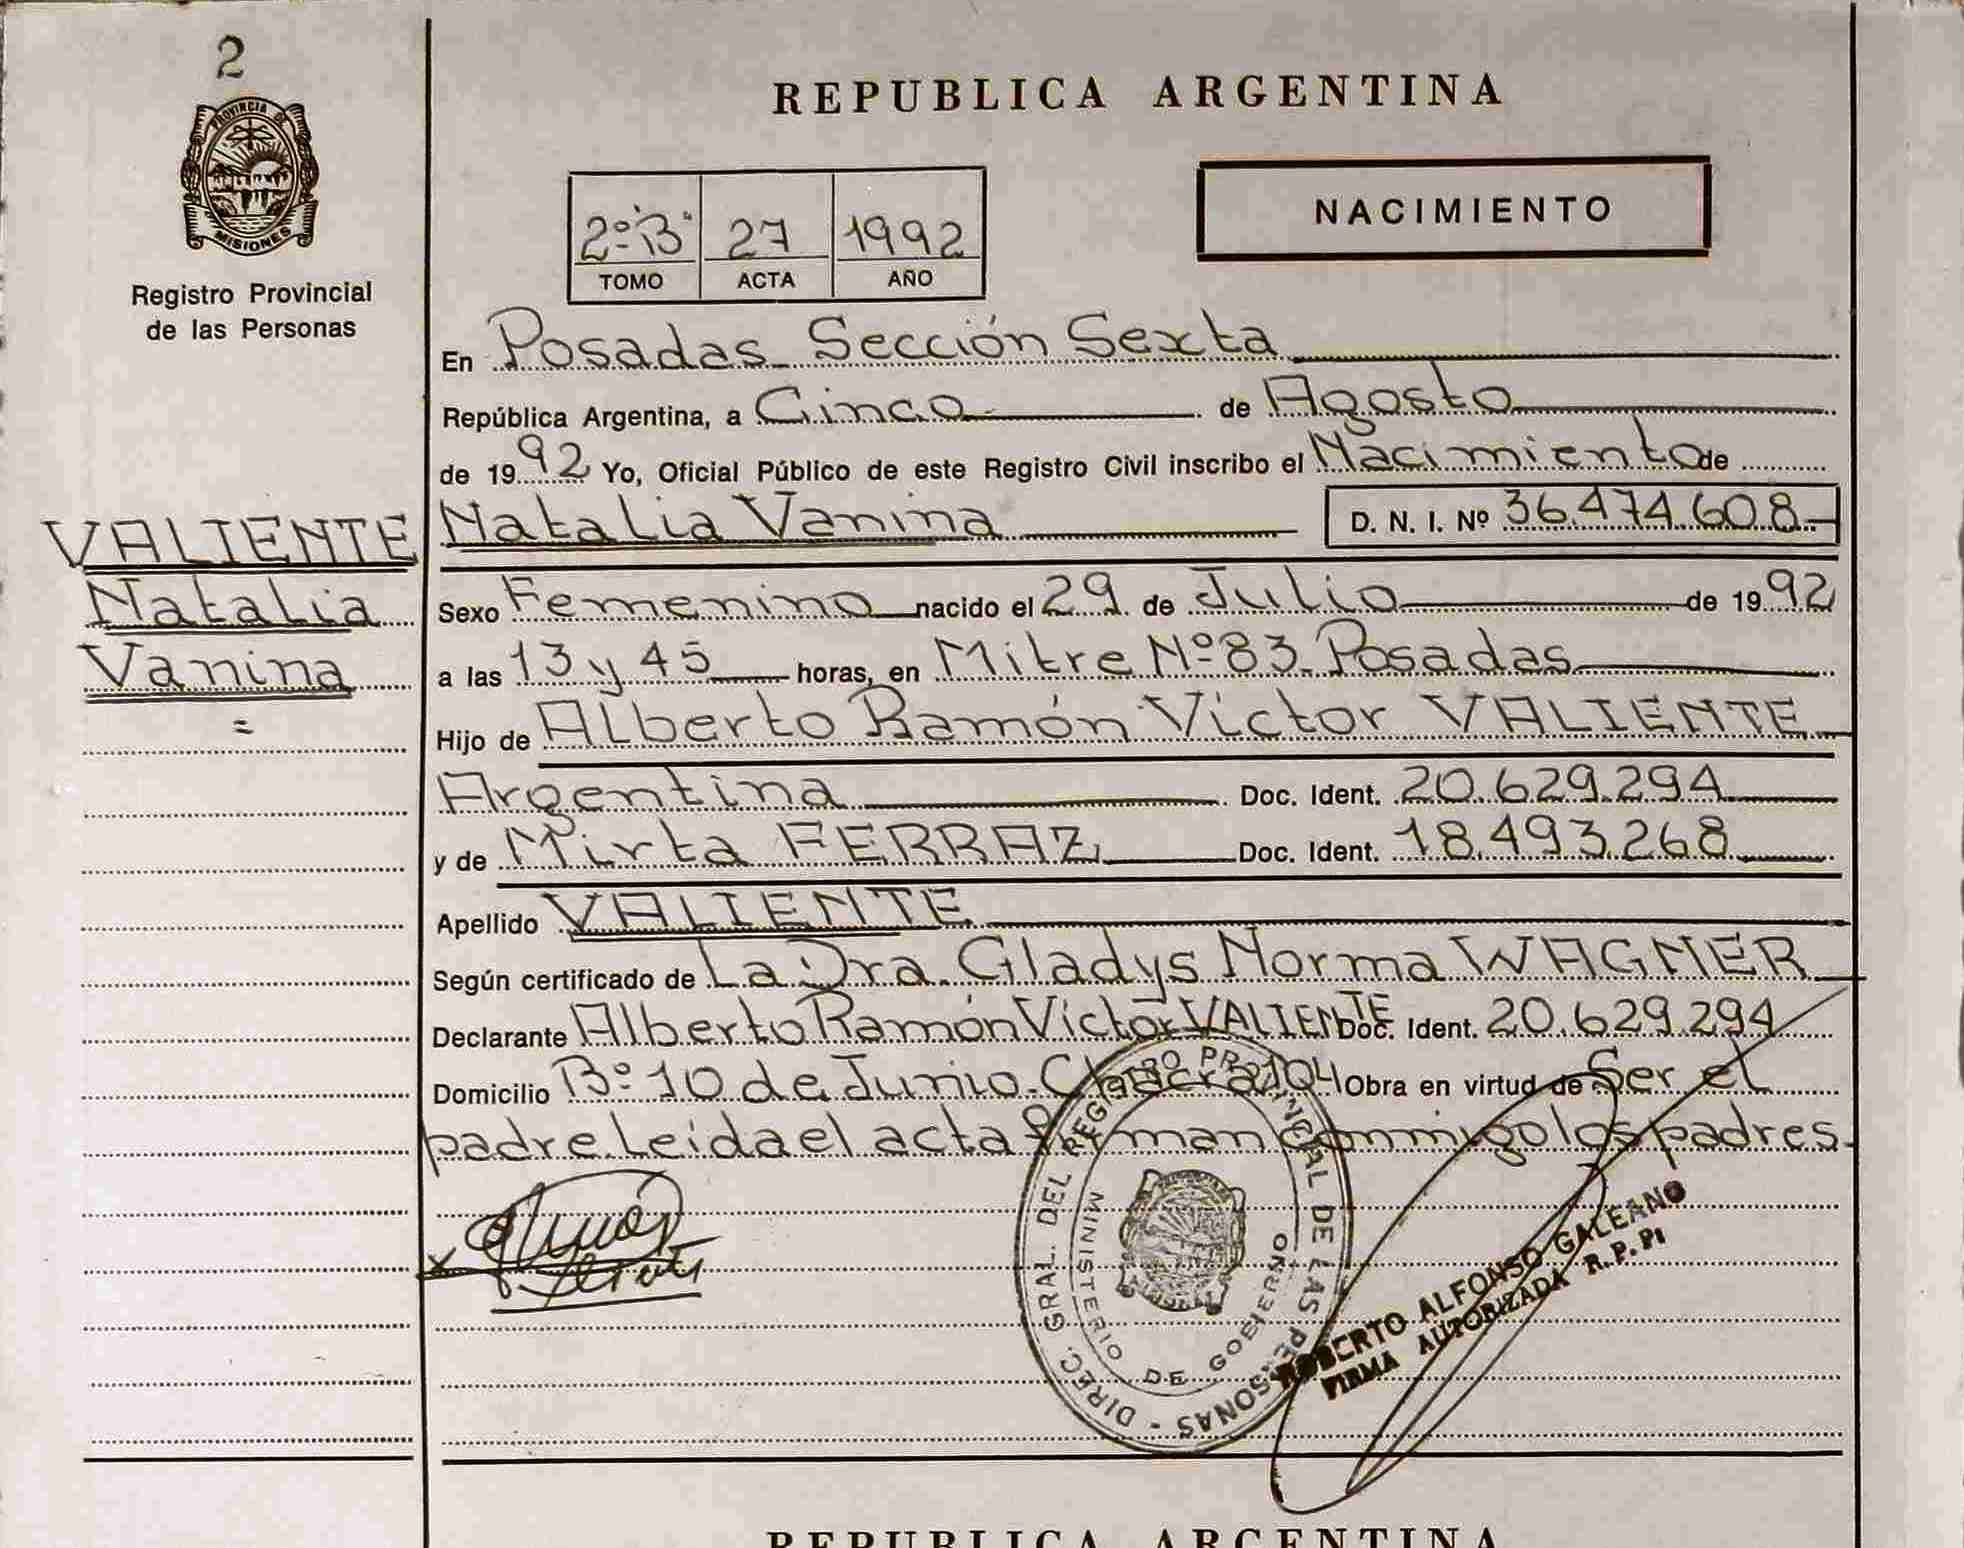 2
PROVINCIA DE
MISIONES
Registro Provincial
de las Personas
VALIENTE
Natalia
Vanina
=
REPUBLICA ARGENTINA
2º "B" 27 1992
TOMO ACTA AÑO
NACIMIENTO
En Posadas Sección Sexta
República Argentina, a Cinco de Agosto
de 1992 Yo, Oficial Público de este Registro Civil inscribo el Nacimiento de
Natalia Vanina D. N. I. Nº 36.474.608
Sexo Femenino nacido el 29 de Julio de 1992
a las 13 y 45 horas, en Mitre Nº 83. Posadas
Hijo de Alberto Ramón Víctor VALIENTE
Argentina Doc. Ident. 20.629.294
y de Mirta FERRAZ Doc. Ident. 18.493.268
Apellido VALIENTE
Según certificado de La Dra. Gladys Norma WAGNER
Declarante Alberto Ramón Víctor VALIENTE Doc. Ident. 20.629.294
Domicilio Bº 10 de Junio. Chacra 104 Obra en virtud de Ser el
padre. Leída el acta firman conmigo los padres.
DIREC. GRAL. DEL REGISTRO PROVINCIAL DE LAS PERSONAS -
MINISTERIO DE GOBIERNO
ROBERTO ALFONSO GALEANO
FIRMA AUTORIZADA R. P. P.
REPUBLICA ARGENTINA